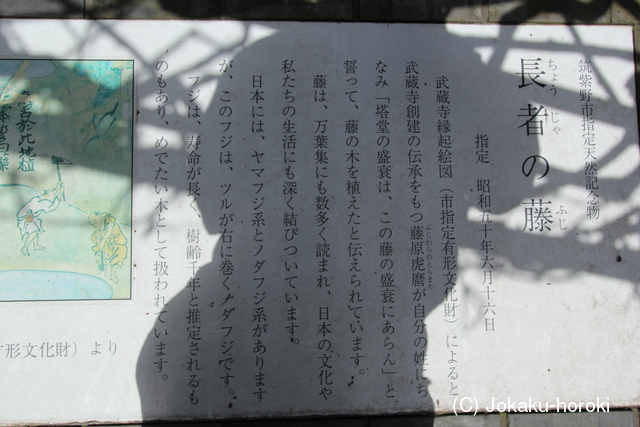 筑紫野市指定天然記念物
長者の藤
ちょうじゃ
ふじ
指定 昭和五十年六月十六日
武蔵寺縁起絵図（市指定有形文化財）によると
武蔵寺創建の伝承をもつ藤原虎麿が自分の姓にち
ふじわらのとらまろ
なみ「塔堂の盛衰は、この藤の盛衰にあらん」と
誓って、藤の木を植えたと伝えられています。
藤は、万葉集にも数多く読まれ、日本の文化や
私たちの生活にも深く結びついています。
日本には、ヤマフジ系とノダフジ系があります
が、このフジは、ツルが右に巻くノダフジです。
フジは、寿命が長く、樹齢千年と推定されるも
のもあり、めでたい木として扱われています。
形文化財）より
(C) Jokaku-horoki